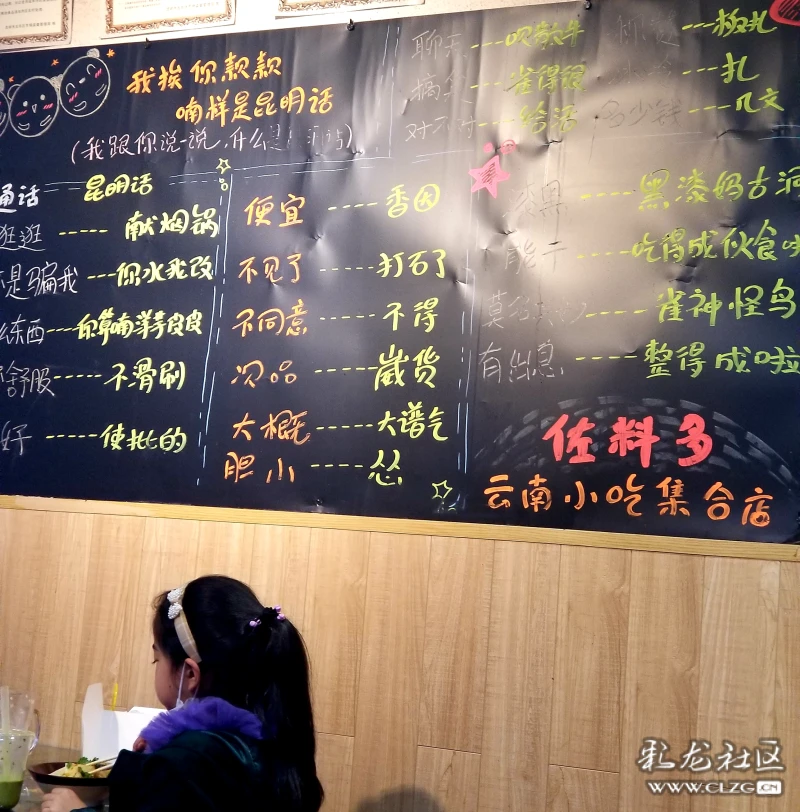 我挨你款款
喃样是昆明话
(我跟你说一说,什么是
聊天---吹散牛
---板扎
---雀得很
---扎
对不对---给活
多少钱---几文
通话---昆明话
逛逛----献烟锅
是骗我---你水我改
东西---你算喃洋芋皮皮
舒服-----不滑刷
好-----使批的
便宜----香因
不见了-----打石了
不同意----不得
次品----崴货
大概----大谱气
胆小----怂
黑-----黑漆妈古洞
能干-----吃得成伙食
-----雀神怪鸟
有出息----整得成啦
佐料多
云南小吃集合店
彩龙社区
WWW.CLZG.CN